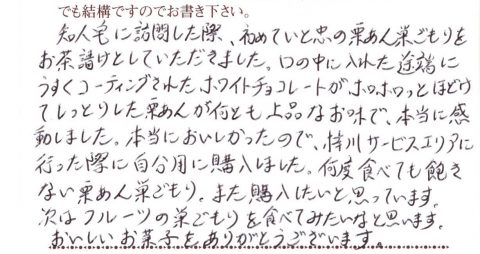 でも結構ですのでお書き下さい。
知人宅に訪問した際、初めていと忠の栗あん巣ごもりを
お茶請けとしていただきました。口の中に入れた途端に
うすくコーティングされたホワイトチョコレートがホロホロっとほどけ
てしっとりした栗あんが何とも上品なお味で、本当に感
動しました。本当においしかったので、サービスエリアに
行った際に自分用に購入しました。何度食べても飽き
ない栗あん巣ごもり。また購入したいと思っています。
次はフルーツの巣ごもりを食べてみたいなと思います。
おいしいお菓子をありがとうございます。